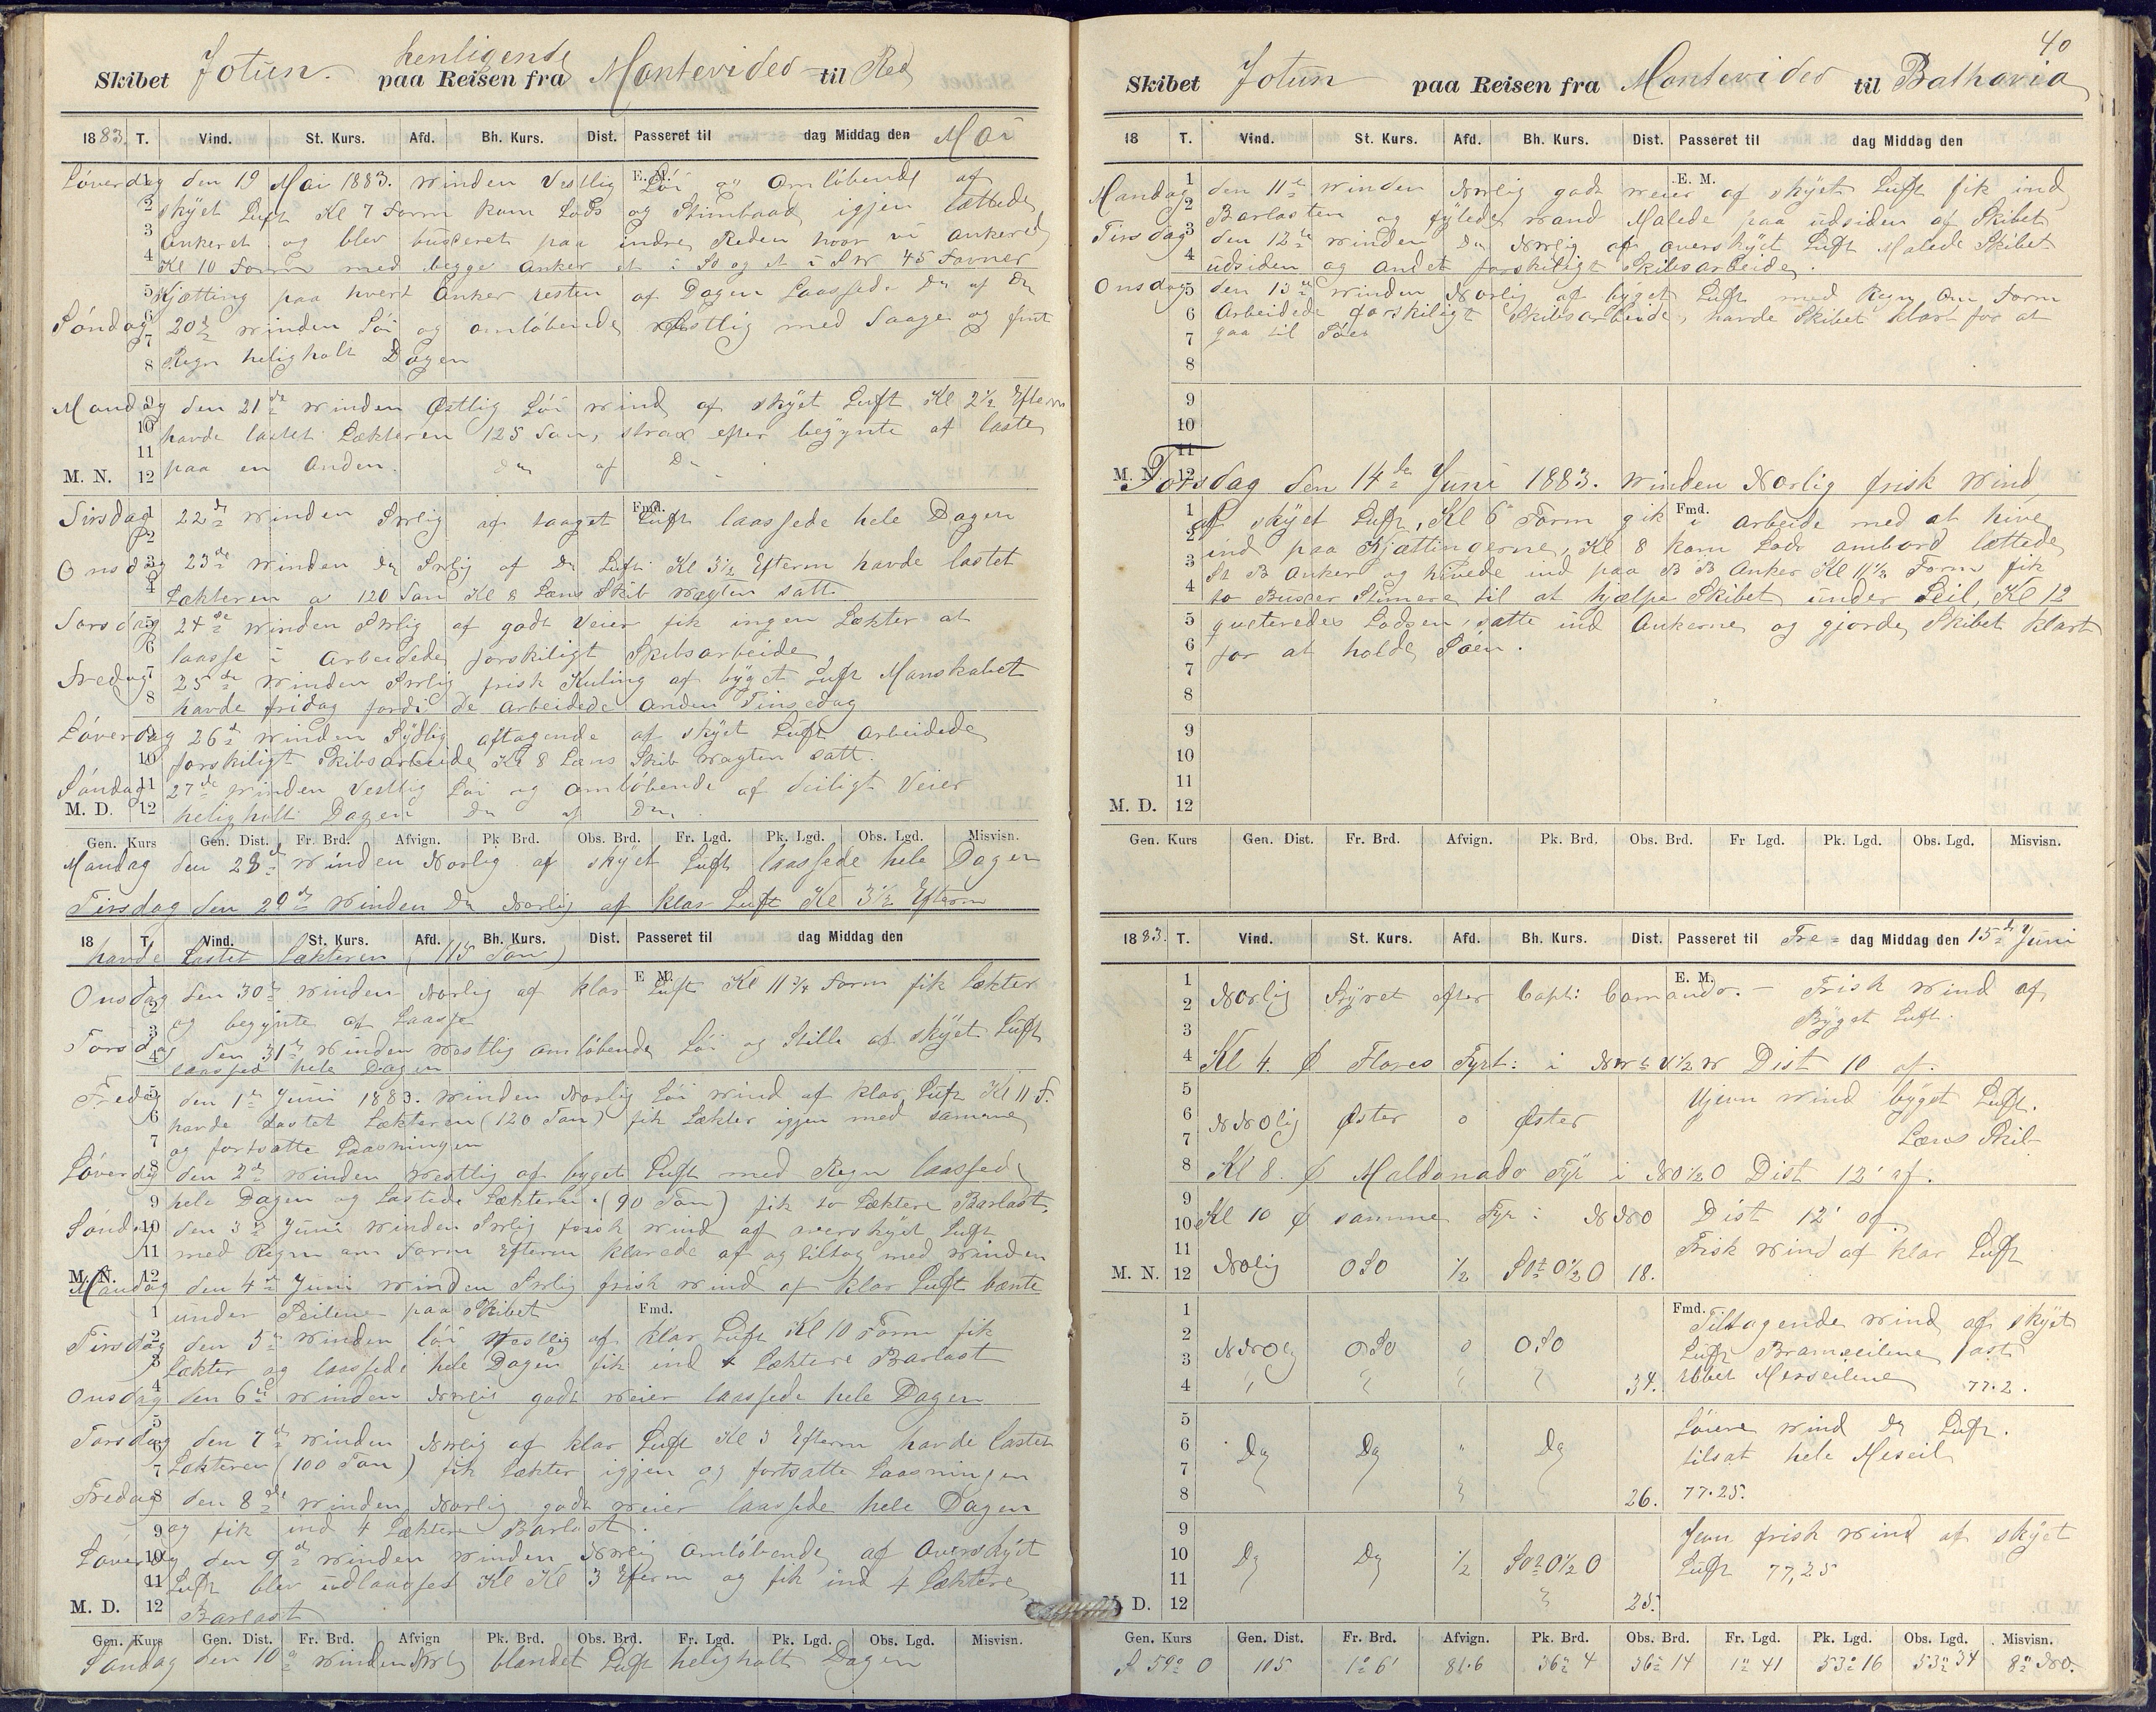 Skibet Jotun. henligende paa Reisen fra Montevideo til Red
1883. T. Vind. St. Kurs. Afd. Bh. Kurs. Dist. Passeret til dag Middag den Mai
Löverdag den 19 Mai 1883. Winden Vestlig Löi og Omlöbende af
skÿet Luft Kl 7 Form kom Lods og Stimbaad igjen lættede
Ankeret og blev bugseret paa indre Reden hvor vi ankered
Kl 10 Form med begge Anker et i So og et i SW 45 Favner
Kjætting paa hvert Anker resten af Dagen Laassede Do af Do
Söndag 20de Winden Löi og omlöbende Vestlig med Taage og fint
Regn heligholt Dagen
Mandag den 21de Winden Østlig Löi Wind af skÿet Luft Kl 2½ Efterm
havde lastet Lækteren 125 Ton, strax efter begÿnte at laste
paa en Anden. Do af Do
M. N. 12
Tirsdag 22de Winden SWlig af taaget Luft laassede hele Dagen
Onsdag 23de Winden Do SWlig af Do Luft Kl 3½ Efterm havde lastet
Lækteren a 120 Ton Kl 8 Læns Skib Wagten satt
Torsdag 24de Winden SWlig af godt Veier fik ingen Lækter at
laasse i Arbeidede forskiligt Skibsarbeide
Fredag 25de Winden SWlig frisk Kuling af bÿget Luft Manskabet
havde fridag fordi de Arbeidede Anden Pinsedag
Löverdag 26de Winden Sÿdlig aftagende af skÿet Luft Arbeidede
forskiligt Skibsarbeide Kl 8 Læns Skib Wagten satt.
Söndag 27de Winden Vestlig Löi og omlöbende af deiligt Veier
M. D. 12 heligholt Dagen Do af Do
Gen. Kurs Gen. Dist. Fr. Brd. Afvign. Pk Brd. Obs. Brd. Fr. Lgd. Pk. Lgd. Obs. Lgd. Misvisn.
Mandag den 28de Winden Norlig af skÿet Luft laassede hele Dagen
Tirsdag den 29de Winden Do Norlig af klar Luft Kl 3½ Efterm
18 T. Vind. St. Kurs. Afd. Bh. Kurs. Dist. Passeret til dag Middag den
havde Lastet Lækteren (115 Ton)
Onsdag den 30te Winden Norlig af klar Luft Kl 11¾ Form fik Lækter
og begÿnte at Laasse
Torsdag den 31te Winden Westlig omlöbende Löi og Stille af skÿet Luft
laassed hele Dagen
Fredag den 1te Juni 1883. Winden Norlig Löi Wind af klar Luft Kl 11 F.
havde Lastet Lækteren (120 Ton) fik Lækter igjen med samme
og fortsatte Laasningen
Löverdag den 2de Winden Westlig af bÿget Luft med Regn laassed
hele Dagen og Lastede Lækteren (90 Ton) fik to Læktere Barlast.
Söndag den 3de Juni Winden SWlig frisk Wind af overskÿet Luft
med Regn om Form Efterm klarede af og tiltog med Winden
M. N. Mandag den 4de Juni Winden SWlig frisk Wind af klar Luft bænte
under Seilene paa Skibet
Tirsdag den 5te Winden löi Westlig af klar Luft Kl 10 Form fik
Lækter og laassede hele Dagen fik ind 4 Læktere Barlast
Onsdag den 6te Winden NWlig godt Weier laassede hele Dagen
Torsdag den 7de Winden NWlig af klar Luft Kl 3 Efterm havde lastet
Lækteren (100 Ton) fik Lækter igjen og fortsatte Laasningen
Fredag den 8de Winden Norlig godt Weier laassede hele Dagen
og fik ind 4 Læktere Barlast.
Löverdag den 9de Winden Winden NWlig Omlöbende af Overskÿet
Luft blev udlaasset Kl Kl 3 Efterm og fik ind 4 Læktere
M. D. 12 Barlast
Gen. Kurs Gen. Dist. Fr. Brd. Afvign Pk. Brd. Obs. Brd. Fr. Lgd. Pk. Lgd. Obs. Lgd. Misvisn.
Söndag den 10de Winden NWlig blandet Luft heligholt Dagen
40
Skibet Jotun paa Reisen fra Montevideo til Bathavia
18 T. Vind. St. Kurs. Afd. Bh. Kurs. Dist. Passeret til dag Middag den
Mandag den 11te Winden NWlig godt Weier af skÿet Luft fik ind
Barlasten og fÿlede Wand Malede paa udsiden af Skibet
Tirsdag den 12te Winden Do NWlig af overskÿet Luft Malede Skibet
udsiden og andet forskiligt Skibsarbeide.
Onsdag den 13de Winden Norlig af bÿget Luft med Regn om Form
Arbeidede forskiligt Skibsarbeide, havde Skibet klart for at
gaa til Söes
M. N. 12
Torsdag den 14de Juni 1883. Winden Norlig frisk Wind
af skÿet Luft, Kl 6 Form gik i arbeide med at hive
ind paa Kjættingerne, Kl 8 kom Lods ombord lættede
St B Anker og hivede ind paa B B Anker Kl 11½ Form fik
to Bugser Stimere til at hjælpe Skibet under Seil, Kl 12
quiteredes Lodsen, satte ind Ankerne og gjorde Skibet klart
for at holde Söen.
M. D. 12
Gen. Kurs Gen. Dist. Fr. Brd. Afvign. Pk. Brd. Obs. Brd. Fr Lgd. Pk. Lgd. Obs. Lgd. Misvisn.
1883. T. Vind. St. Kurs. Afd. Bh. Kurs. Dist. Passeret til Fre- dag Middag den 15de Juni
E. M.
Norlig Stÿret efter Capt: Comando. — Frisk Wind af
Bÿget Luft.
Kl 4. Flores Fyrt: i Dist 10 af.
NNOlig Øster 0 Øster Ujevn Wind bÿget Luft.
Læns Skib
Kl 8. Maldonado Fyr i NO½O Dist 12' af.
Kl 10 samme Fyr: NNO Dist 12' af.
M. N. 12 NOlig OSO ½ SOtO½O 18. Frisk Wind af klar Luft
Fmd. Tiltagende Wind af skÿet
NNOlig OSO 0 OSO Luft Bramseilene fast
34. Rebet Merseilene 77.2.
Do Do " Do Löiere Wind Do Luft.
tilsat hele Meseil
26. 77.25.
Do Do ½ SOtO½O Jevn frisk Wind af skÿet
Luft 77,25
D. 12 25.
Gen. Kurs Gen. Dist. Fr. Brd. Afvign. Pk. Brd. Obs. Brd. Fr. Lgd. Pk. Lgd. Obs. Lgd. Misvisn.
S 59° O 105 1° 6' 81.6 36° 4 36° 14 1° 41 53° 16 53° 34 8° NO.